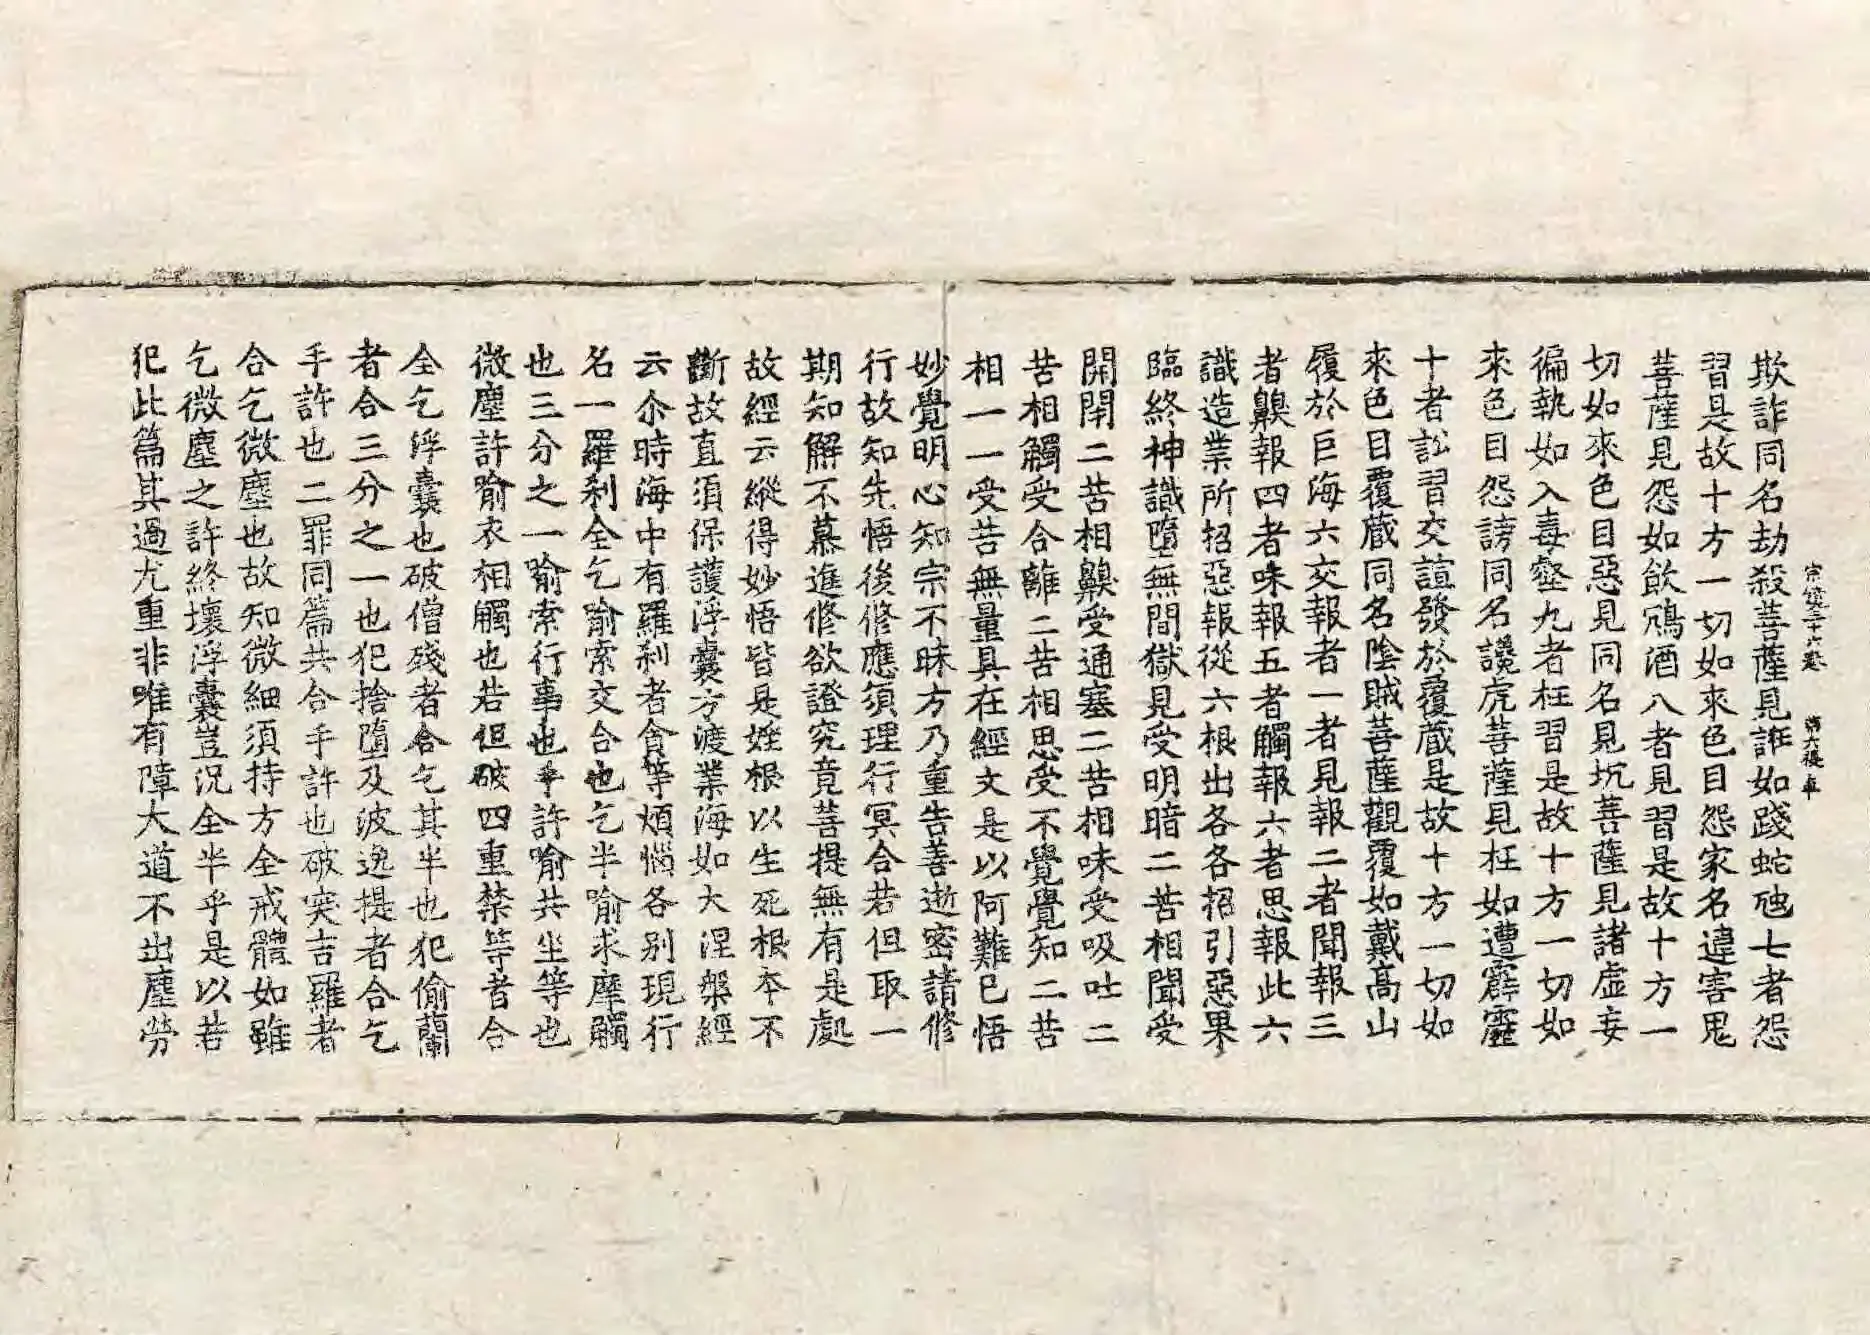 宗鏡三十六卷 第六張 車
欺詐同名劫殺菩薩見誑如踐蛇虺七者怨
習是故十方一切如來色目怨家名違害鬼
菩薩見怨如飲鴆酒八者見習是故十方一
切如來色目惡見同名見坑菩薩見諸虛妄
徧執如入毒壑九者枉習是故十方一切如
來色目怨謗同名讒虎菩薩見枉如遭霹靂
十者訟習交諠發於覆蔵是故十方一切如
來色目覆蔵同名陰賊菩薩觀覆如戴髙山
履於巨海六交報者一者見報二者聞報三
者齅報四者味報五者觸報六者思報此六
識造業所招惡報從六根出各各招引惡果
臨終神識墮無間獄見受明暗二苦相聞受
開閉二苦相齅受通塞二苦相味受吸吐二
苦相觸受合離二苦相思受不覺覺知二苦
相一一受苦無量具在經文是以阿難已悟
妙覺明心知宗不昧方乃重告善逝密請修
行故知先悟後修應須理行冥合若但取一
期知解不慕進修欲證究竟菩提無有是處
故經云縱得妙悟皆是婬根以生死根夲不
斷故直須保護浮囊方渡業海如大涅槃經
云尒時海中有羅刹者貪等煩惱各別現行
名一羅刹全乞喻索交合也乞半喻求摩觸
也三分之一喻索行事也手許喻共坐等也
微塵許喻衣相觸也若但破四重禁等者合
全乞浮囊也破僧殘者合乞其半也犯偷蘭
者合三分之一也犯捨墮及波逸提者合乞
手許也二罪同篇共合手許也破突吉羅者
合乞微塵也故知微細須持方全戒體如雖
乞微塵之許終壞浮囊豈況全半乎是以若
犯此篇其過尤重非唯有障大道不出塵勞